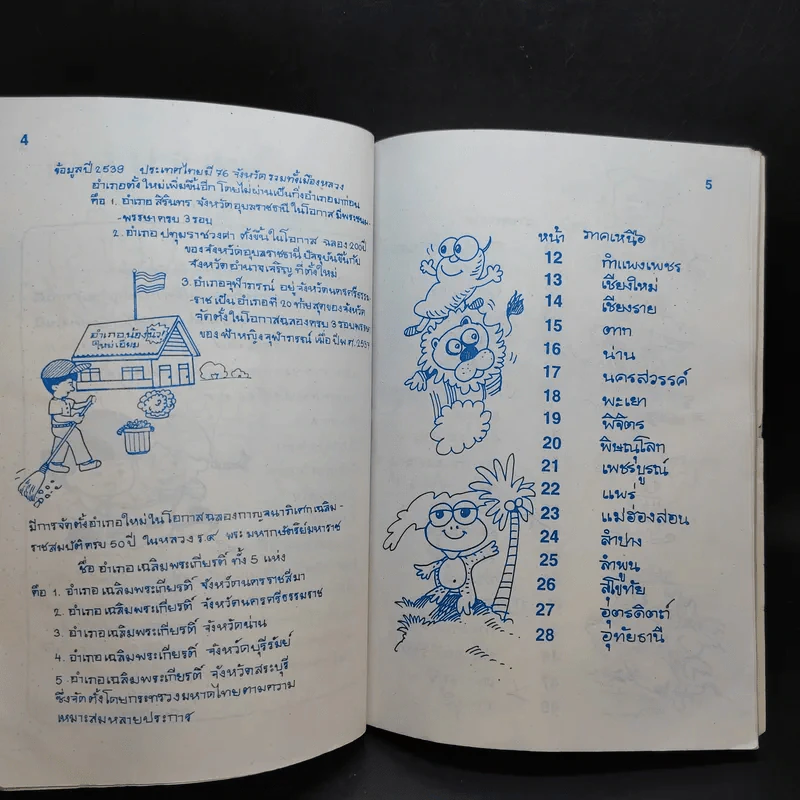 4
ข้อมูลปี 2539 ประเทศไทยมี 76 จังหวัด รวมทั้งเมืองหลวง
อำเภอตั้งใหม่เพิ่มขึ้นอีก โดยไม่ผ่านเป็นกิ่งอำเภอมาก่อน
คือ 1. อำเภอ สิรินธร จังหวัดอุบลราชธานี ในโอกาส มีพระชนม-
-พรรษาครบ 3 รอบ
2. อำเภอ ปทุมราชวงศา ตั้งขึ้นในโอกาส ฉลอง 200 ปี
ของจังหวัดอุบลราชธานี ปัจจุบันขึ้นกับ
จังหวัด อำนาจเจริญ ที่ตั้งใหม่
3. อำเภอจุฬาภรณ์ อยู่จังหวัดนครศรีธรรม
-ราช เป็น อำเภอที่ 20 ท้ายสุดของจังหวัด
จัดตั้งในโอกาสฉลองครบ 3 รอบ
ของฟ้าหญิงจุฬาภรณ์ เมื่อ ปีพ.ศ. 2537
อำเภอน้อง
ใหม่เอี่ยม
มีการจัดตั้งอำเภอใหม่ในโอกาสฉลองกาญจนาภิเศก เฉลิม-
ราชสมบัติครบ 50 ปี ในหลวง ร.๙ พระมหากษัตริย์มหาราช
ชื่อ อำเภอ เฉลิมพระเกียรติ ทั้ง 5 แห่ง
คือ 1. อำเภอ เฉลิมพระเกียรติ จังหวัดนครราชสีมา
2. อำเภอเฉลิมพระเกียรติ จังหวัดนครศรีธรรมราช
3. อำเภอเฉลิมพระเกียรติ จังหวัดน่าน
4. อำเภอเฉลิมพระเกียรติ จังหวัดบุรีรัมย์
5. อำเภอเฉลิมพระเกียรติ จังหวัดสระบุรี
ซึ่งจัดตั้งโดยกระทรวงมหาดไทยตามความ
เหมาะสมหลายประการ
5
หน้า ภาคเหนือ
12 กำแพงเพชร
13 เชียงใหม่
14 เชียงราย
15 ตาก
16 น่าน
17 นครสวรรค์
18 พะเยา
19 พิจิตร
20 พิษณุโลก
21 เพชรบูรณ์
22 แพร่
23 แม่ฮ่องสอน
24 ลำปาง
25 ลำพูน
26 สุโขทัย
27 อุตรดิตถ์
28 อุทัยธานี